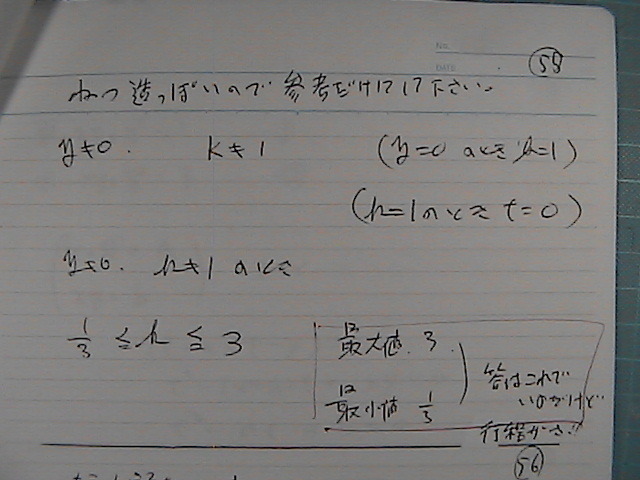 No.
DATE
58
ねつ造っぽいので参考だけにして下さい。
y≠0. k≠1 (y=0 のとき k=1)
(k=1のとき t=0)
y≠0. k≠1 のとき
1/3 ≦ k ≦ 3
最大値 3
最小値 1/3
答はこれで
いいのだけど
行程がさ
56